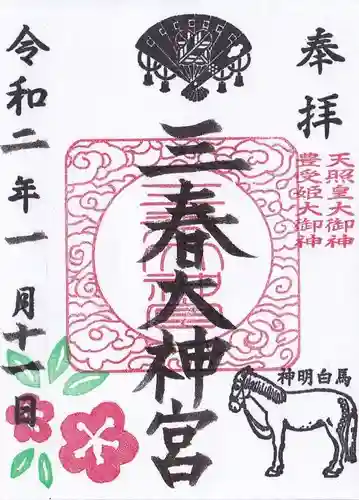 奉拝
天照皇大御神
豊受姫大御神
三春大神宮
神明白馬
令和二年一月十一日